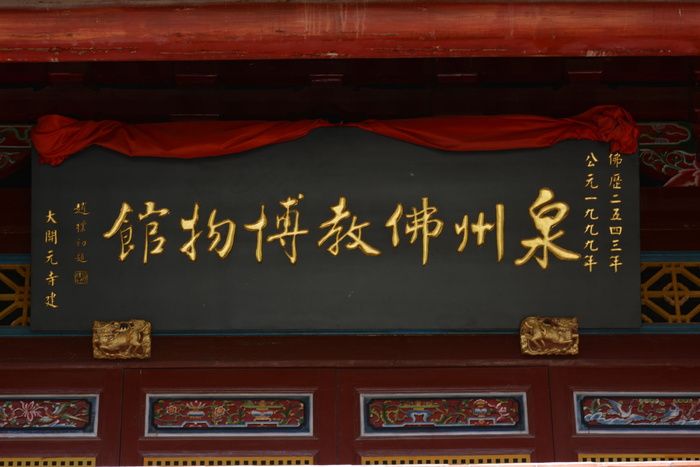 佛歷二五四三年
公元一九九九年
泉州佛教博物館
趙樸初題
大開元寺建